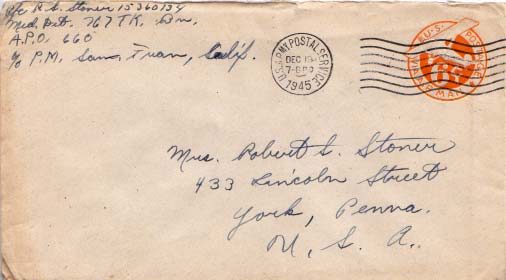 Pfc R. S. Stoner 15360134
Med. Det. 767 TK. Bn.
A.P.O. 660
c/o P.M. San Fran, Calif.
U.S. ARMY POSTAL SERVICE
DEC 19
1945
U.S. POSTAGE
VIA AIR MAIL
Mrs. Robert S. Stoner
433 Lincoln Street
York, Penna.
U. S. A.